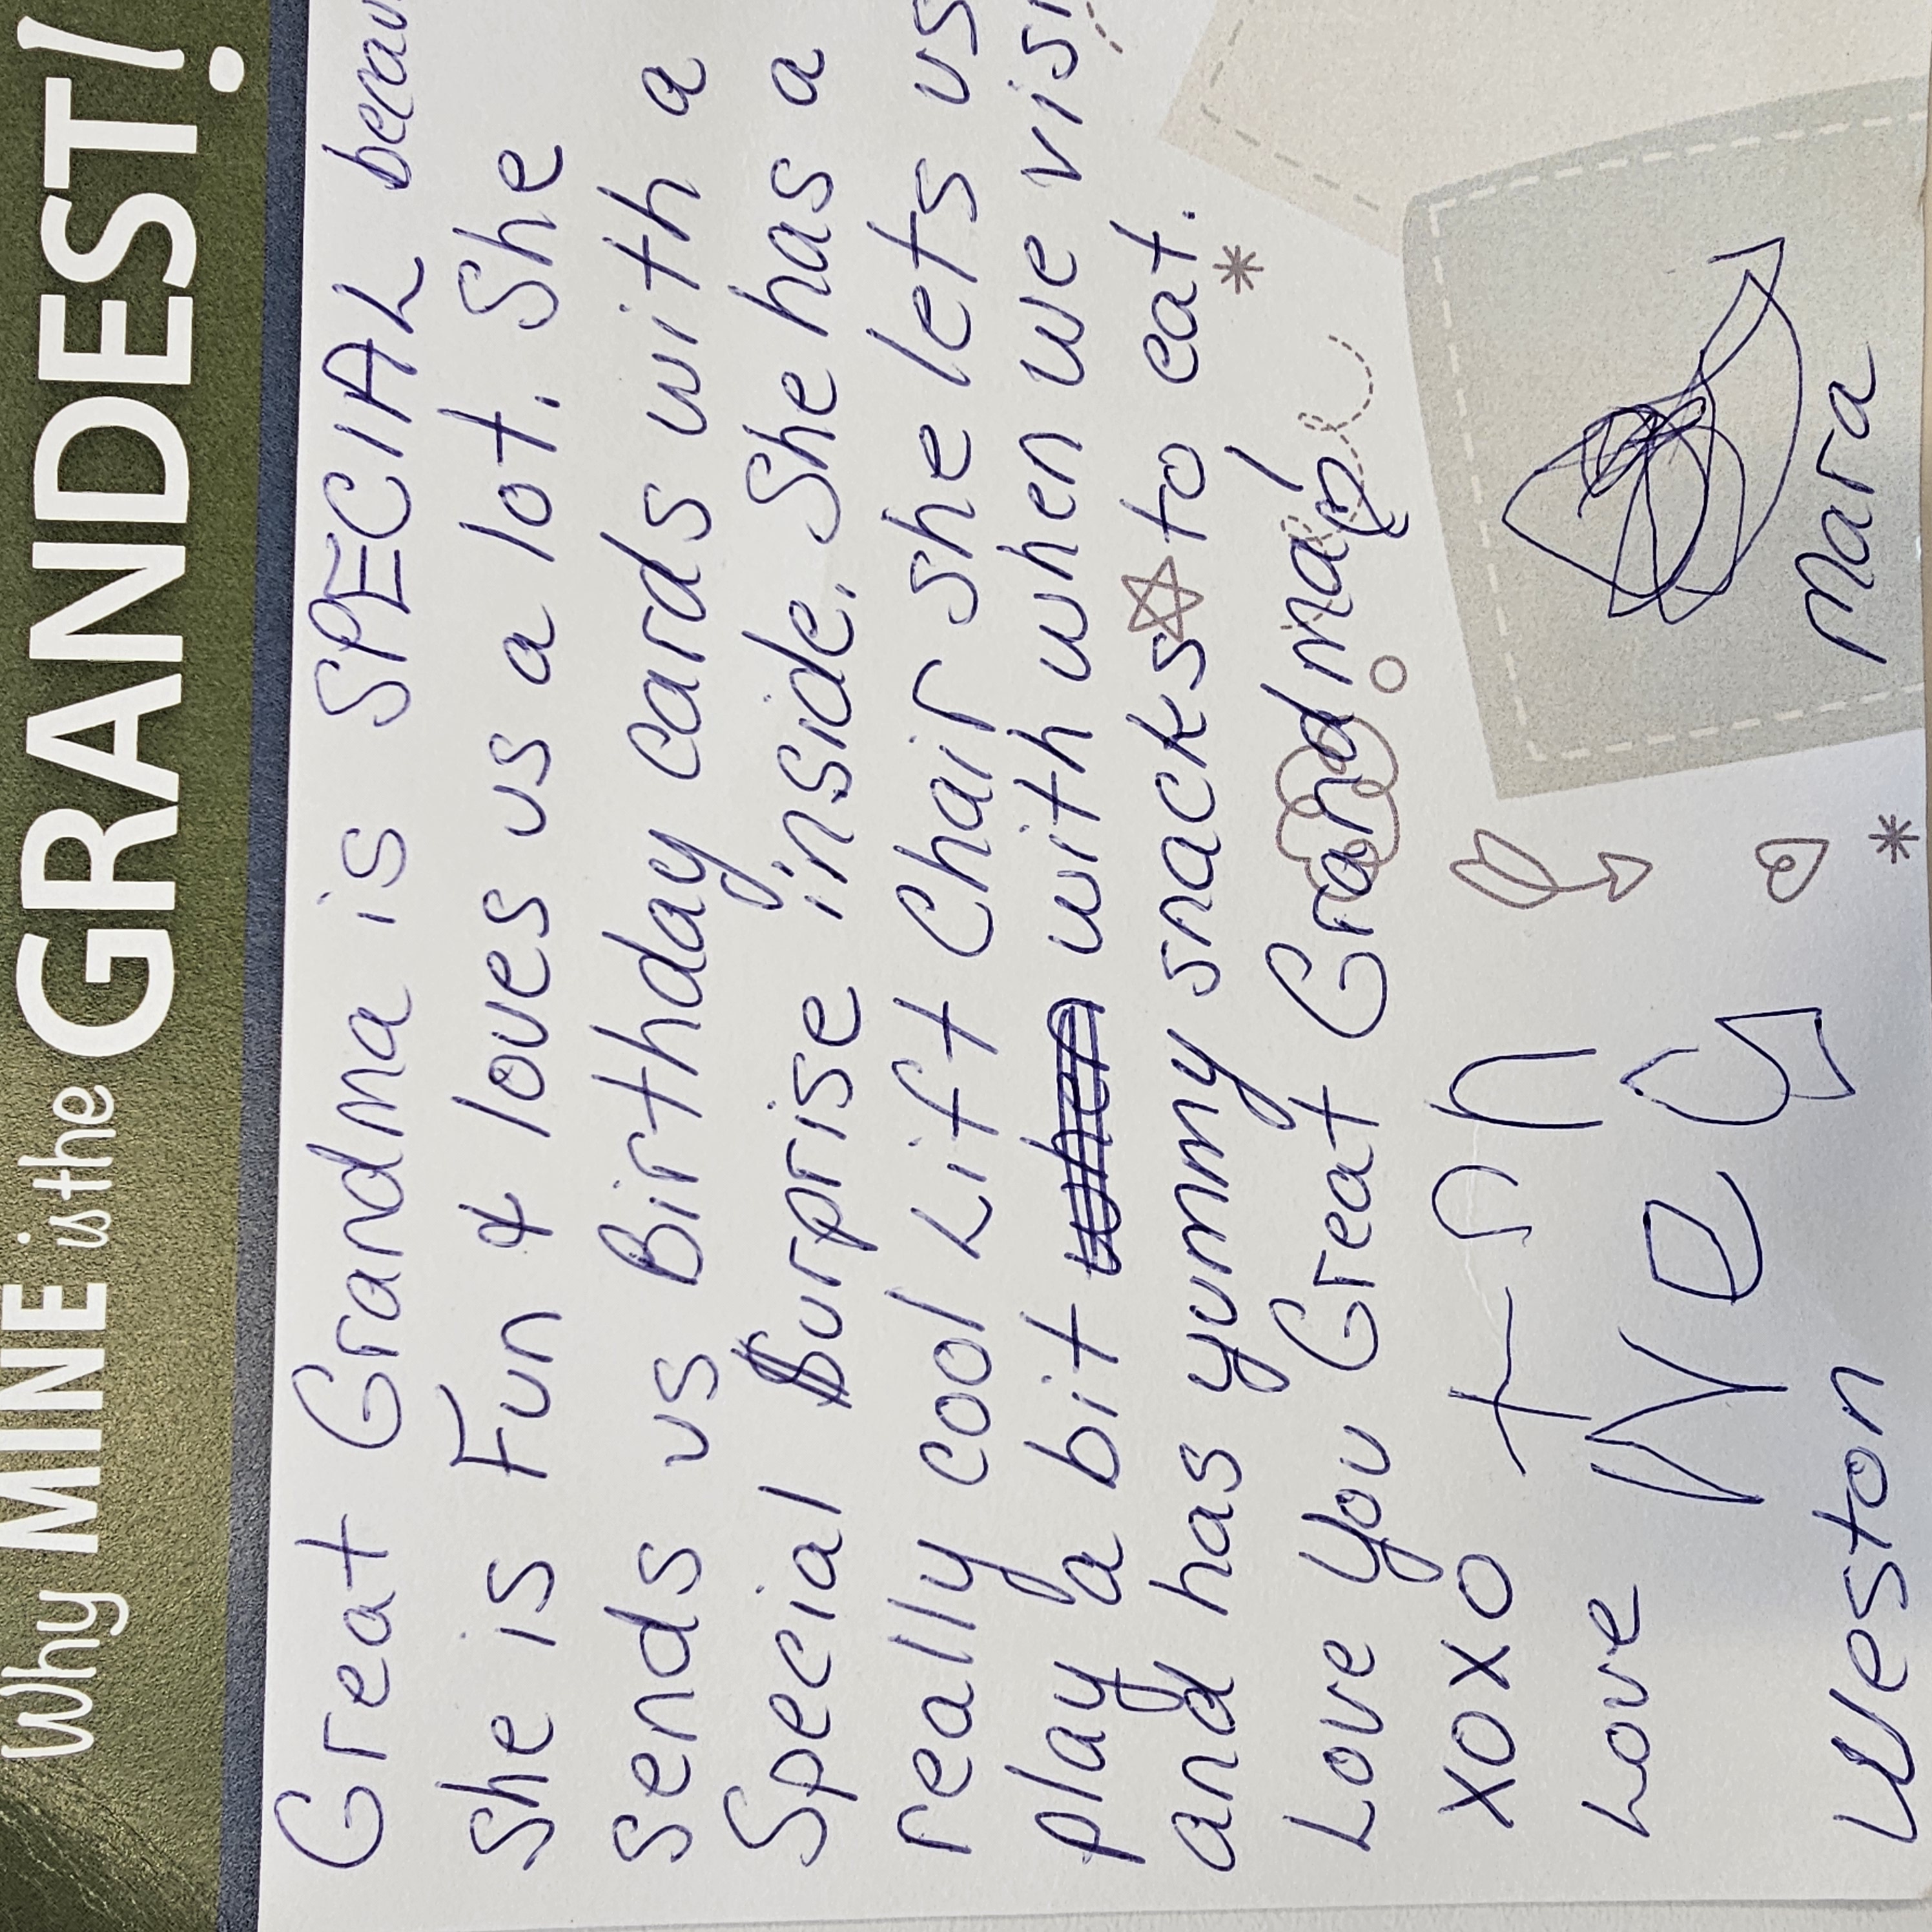 Why MINE is the GRANDEST!
Great Grandma is SPECIAL becau
She is Fun & loves us a lot. She
sends us Birthday cards with a
Special Surprise inside. She has a
really cool Lift Chair she lets us
play a bit with when we visi
and has yummy snacks to eat.
Love You Great Grandma!
XOXO
Love
Weston
Mara